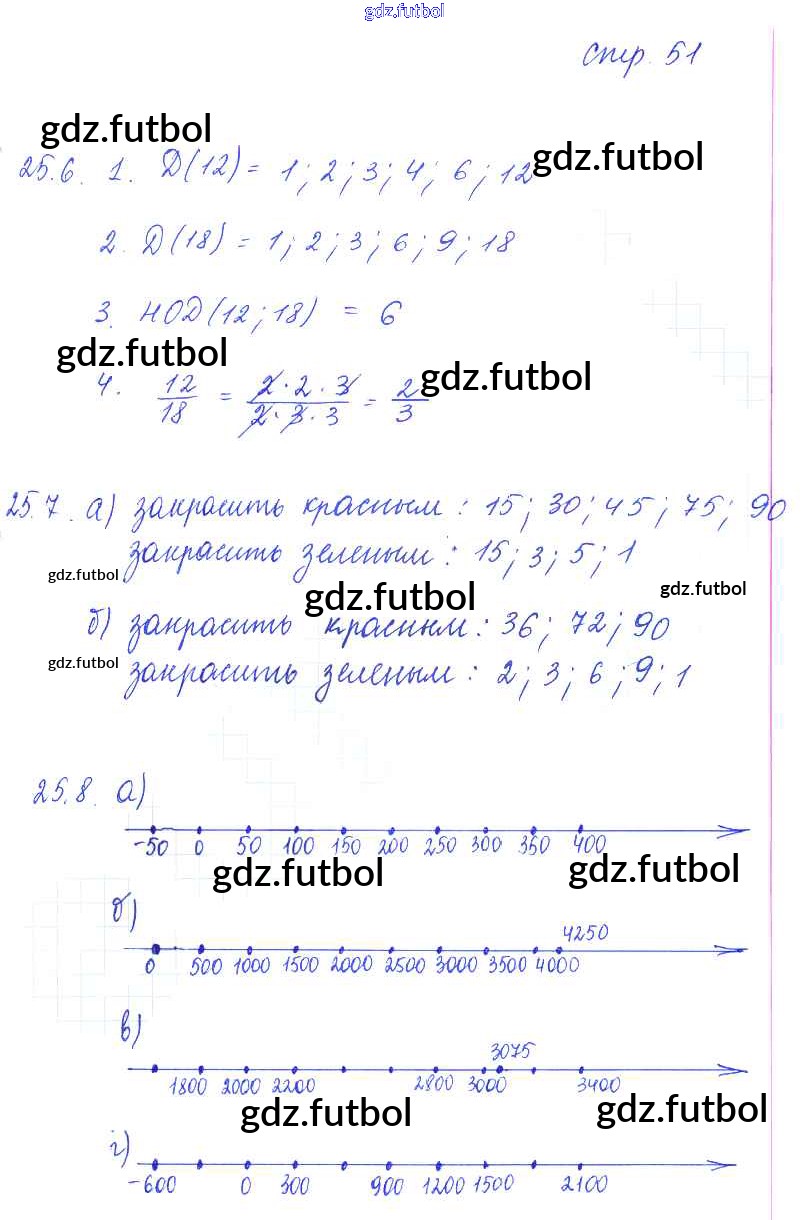 gdz.futbol
стр. 51
gdz.futbol
gdz.futbol
25.6. 1. Д(12) = 1; 2; 3; 4; 6; 12
2. Д(18) = 1; 2; 3; 6; 9; 18
3. НОД(12; 18) = 6
gdz.futbol
gdz.futbol
4. 12/18 = 2·2·3/2·3·3 = 2/3
25.7. а) закрасить красным: 15; 30; 45; 75; 90
закрасить зеленым: 15; 3; 5; 1
gdz.futbol
gdz.futbol
gdz.futbol
б) закрасить красным: 36; 72; 90
gdz.futbol
закрасить зеленым: 2; 3; 6; 9; 1
25.8. а)
-50 0 50 100 150 200 250 300 350 400
gdz.futbol
gdz.futbol
б)
4250
0 500 1000 1500 2000 2500 3000 3500 4000
в)
3075
1800 2000 2200 2800 3000 3400
gdz.futbol
gdz.futbol
г)
-600 0 300 900 1200 1500 2100